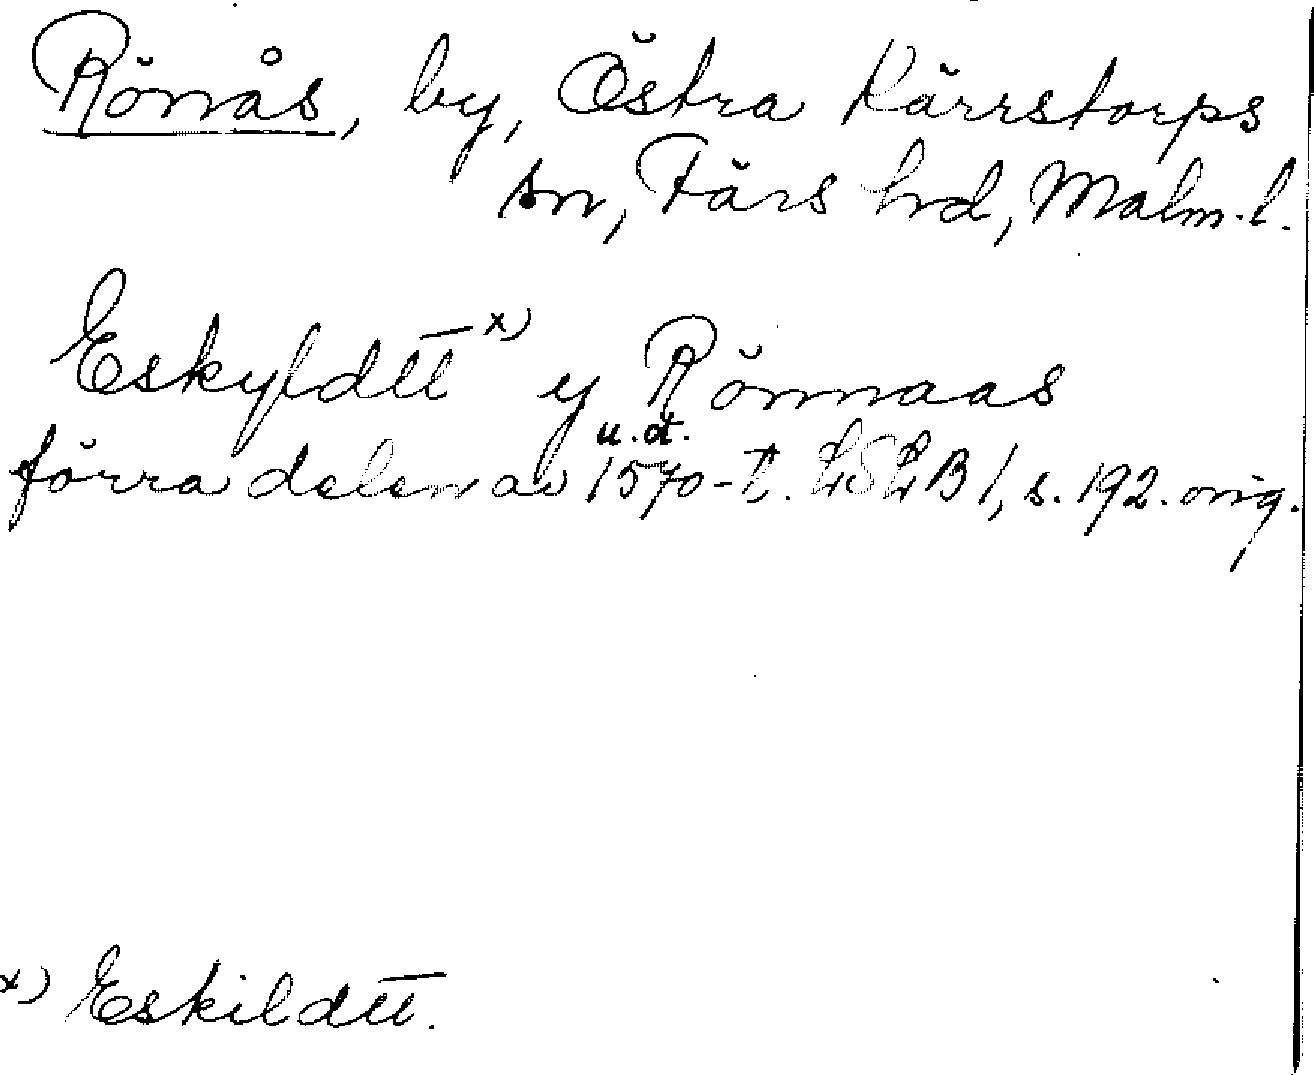 Rönås, by, Östra Kärrstorps
sn, Färs hrd, Malm. l.
Eskyldtt x) y Rönnaas
u. d.
förra delen av 1570-t. LSLB 1, s. 192. orig.
x) Eskildtt.